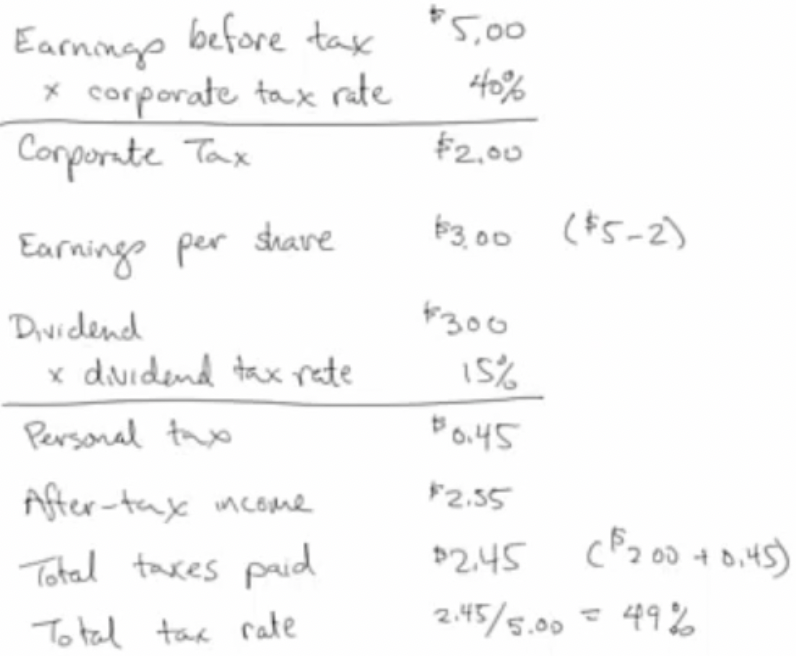 Earnings before tax $5.00
x corporate tax rate 40%
Corporate Tax $2.00
Earnings per share $3.00 ($5-2)
Dividend $300
x dividend tax rate 15%
Personal tax $0.45
After-tax income $2.55
Total taxes paid $2.45 ($200 + 0.45)
Total tax rate 2.45/5.00 = 49%